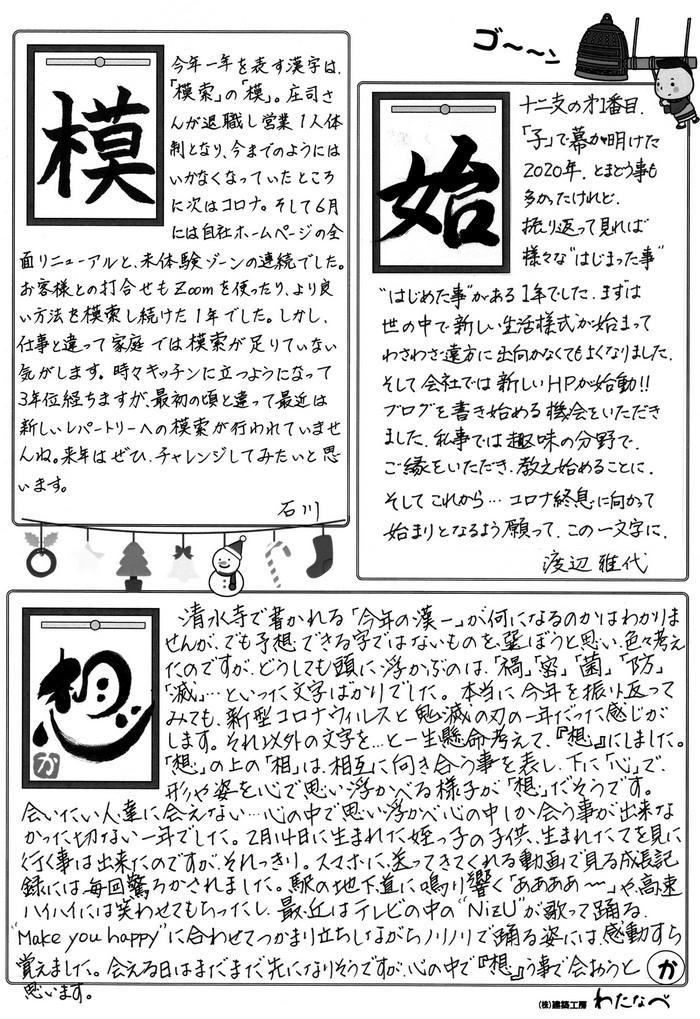 模
今年一年を表す漢字は、
「模索」の「模」。庄司さ
んが退職し営業1人体
制となり、今までのようには
いかなくなっていたところ
に次はコロナ。そして6月
には自社ホームページの全
面リニューアルと、未体験ゾーンの連続でした。
お客様との打合せもZoomを使ったり、より良
い方法を模索し続けた1年でした。しかし、
仕事と違って家庭では模索が足りていない
気がします。時々キッチンに立つようになって
3年位経ちますが、最初の頃と違って最近は
新しいレパートリーへの模索が行われていませ
んね。来年はぜひ、チャレンジしてみたいと思
います。
石川
ゴ〜〜ン
始
十二支の才1番目、
「子」で幕が明けた
2020年。とまどう事も
多かったけれど、
振り返って見れば
様々な"はじまった事"
"はじめた事"がある1年でした。まずは
世の中で新しい生活様式が始まって
わざわざ遠方に出向かなくてもよくなりました。
そして会社では新しいHPが始動!!
ブログを書き始める機会をいただき
ました。私事では趣味の分野で、
ご縁をいただき、教え始めることに。
そしてこれから…コロナ終息に向かって
始まりとなるよう願って、この一文字に。
渡辺雅代
想
か
清水寺で書かれる「今年の漢一」が何になるのかはわかりま
せんが、でも予想できる字ではないものを選ぼうと思い、色々考え
たのですが、どうしても頭に浮かぶのは、「禍」「密」「菌」「防」
「滅」…といった文字ばかりでした。本当に今年を振り返って
みても、新型コロナウィルスと鬼滅の刃の一年だった感じが
します。それ以外の文字を…と一生懸命考えて、『想』にしました。
「想」の上の「相」は、相互に向き合う事を表し、下に「心」で、
形や姿を心で思い浮かべる様子が「想」だそうです。
会いたい人達に会えない…心の中で思い浮かべ心の中しか会う事が出来な
かった切ない一年でした。2月14日に生まれた姪っ子の子供、生まれたてを見に
行く事は出来たのですが、それっきり。スマホに送ってきてくれる動画で見る成長記
録には毎回驚ろかされました。駅の地下道に鳴り響く「ああああ〜」や、高速
ハイハイには笑わせてもらったし、最近はテレビの中の"NizU"が歌って踊る、
"Make you happy"に合わせてつかまり立ちしながらノリノリで踊る姿には、感動すら
覚えました。会える日はまだまだ先になりそうですが、心の中で『想』う事で会おうと
思います。
か
(株)建築工房 わたなべ